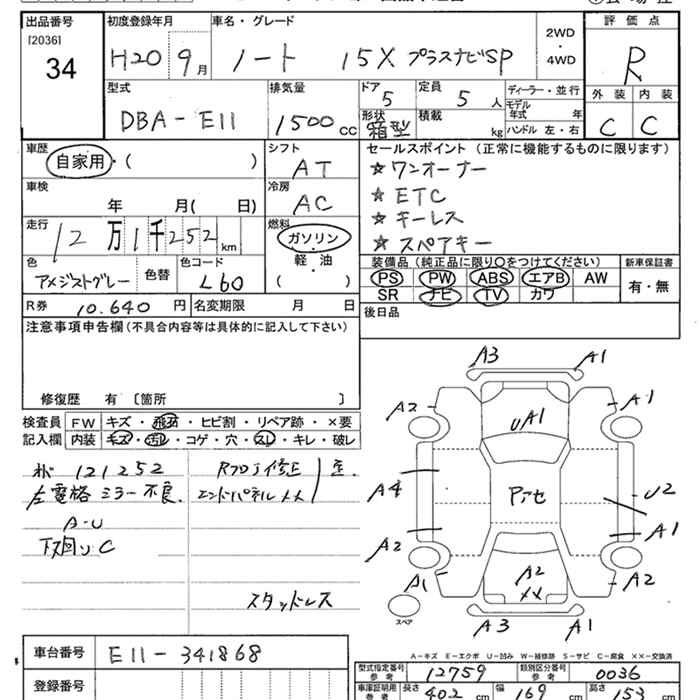 出品番号 初度登録年月 車名・グレード 評価点
[2036] 2WD
34 H20 9月 ノート 15X プラスナビSP ・ R
4WD
外装 内装
型式 排気量 ドア 定員 ディーラー・並行 C C
DBA-E11 1500cc 5 5人 モデル年式 年
形状 箱型 積載 kg ハンドル 左・右
車歴 シフト セールスポイント(正常に機能するものに限ります)
自家用・( ) AT ☆ワンオーナー
車検 冷房 ☆ETC
年 月( 日) AC ☆キーレス
走行 燃料 ☆スペアキー
12万1千252km ガソリン 装備品(純正品に限り○をつけてください) 新車保証書
色 色替 色コード 軽・油 PS PW ABS エアB AW 有・無
アメジストグレー L60 ( ) SR ナビ TV カワ
R券 10.640円 名変期限 月 日 後日品
注意事項申告欄(不具合内容等は具体的に記入して下さい)
修復歴 有 〔箇所 〕
検査員 FW キズ・飛石・ヒビ割・リペア跡・×要
記入欄 内装 キズ・汚れ・コゲ・穴・スレ・キレ・破レ
121252
左電格ミラー不良 エンドパネルXX
A-U
下回りC
スタッドレス
A3 A1
A2 A1
UA1
A4 アセ U2
A2 A1
A1 A2 A2
XX
スペア A3 A1
A-キズ E-エクボ U-凹み W-補修跡 S-サビ C-腐食 XX-交換済
車台番号 E11-341868
型式指定番号 参考 12759 類別区分番号 参考 0036
登録番号
車庫証明用 参考 長さ 402cm 幅 169cm 高さ 153cm